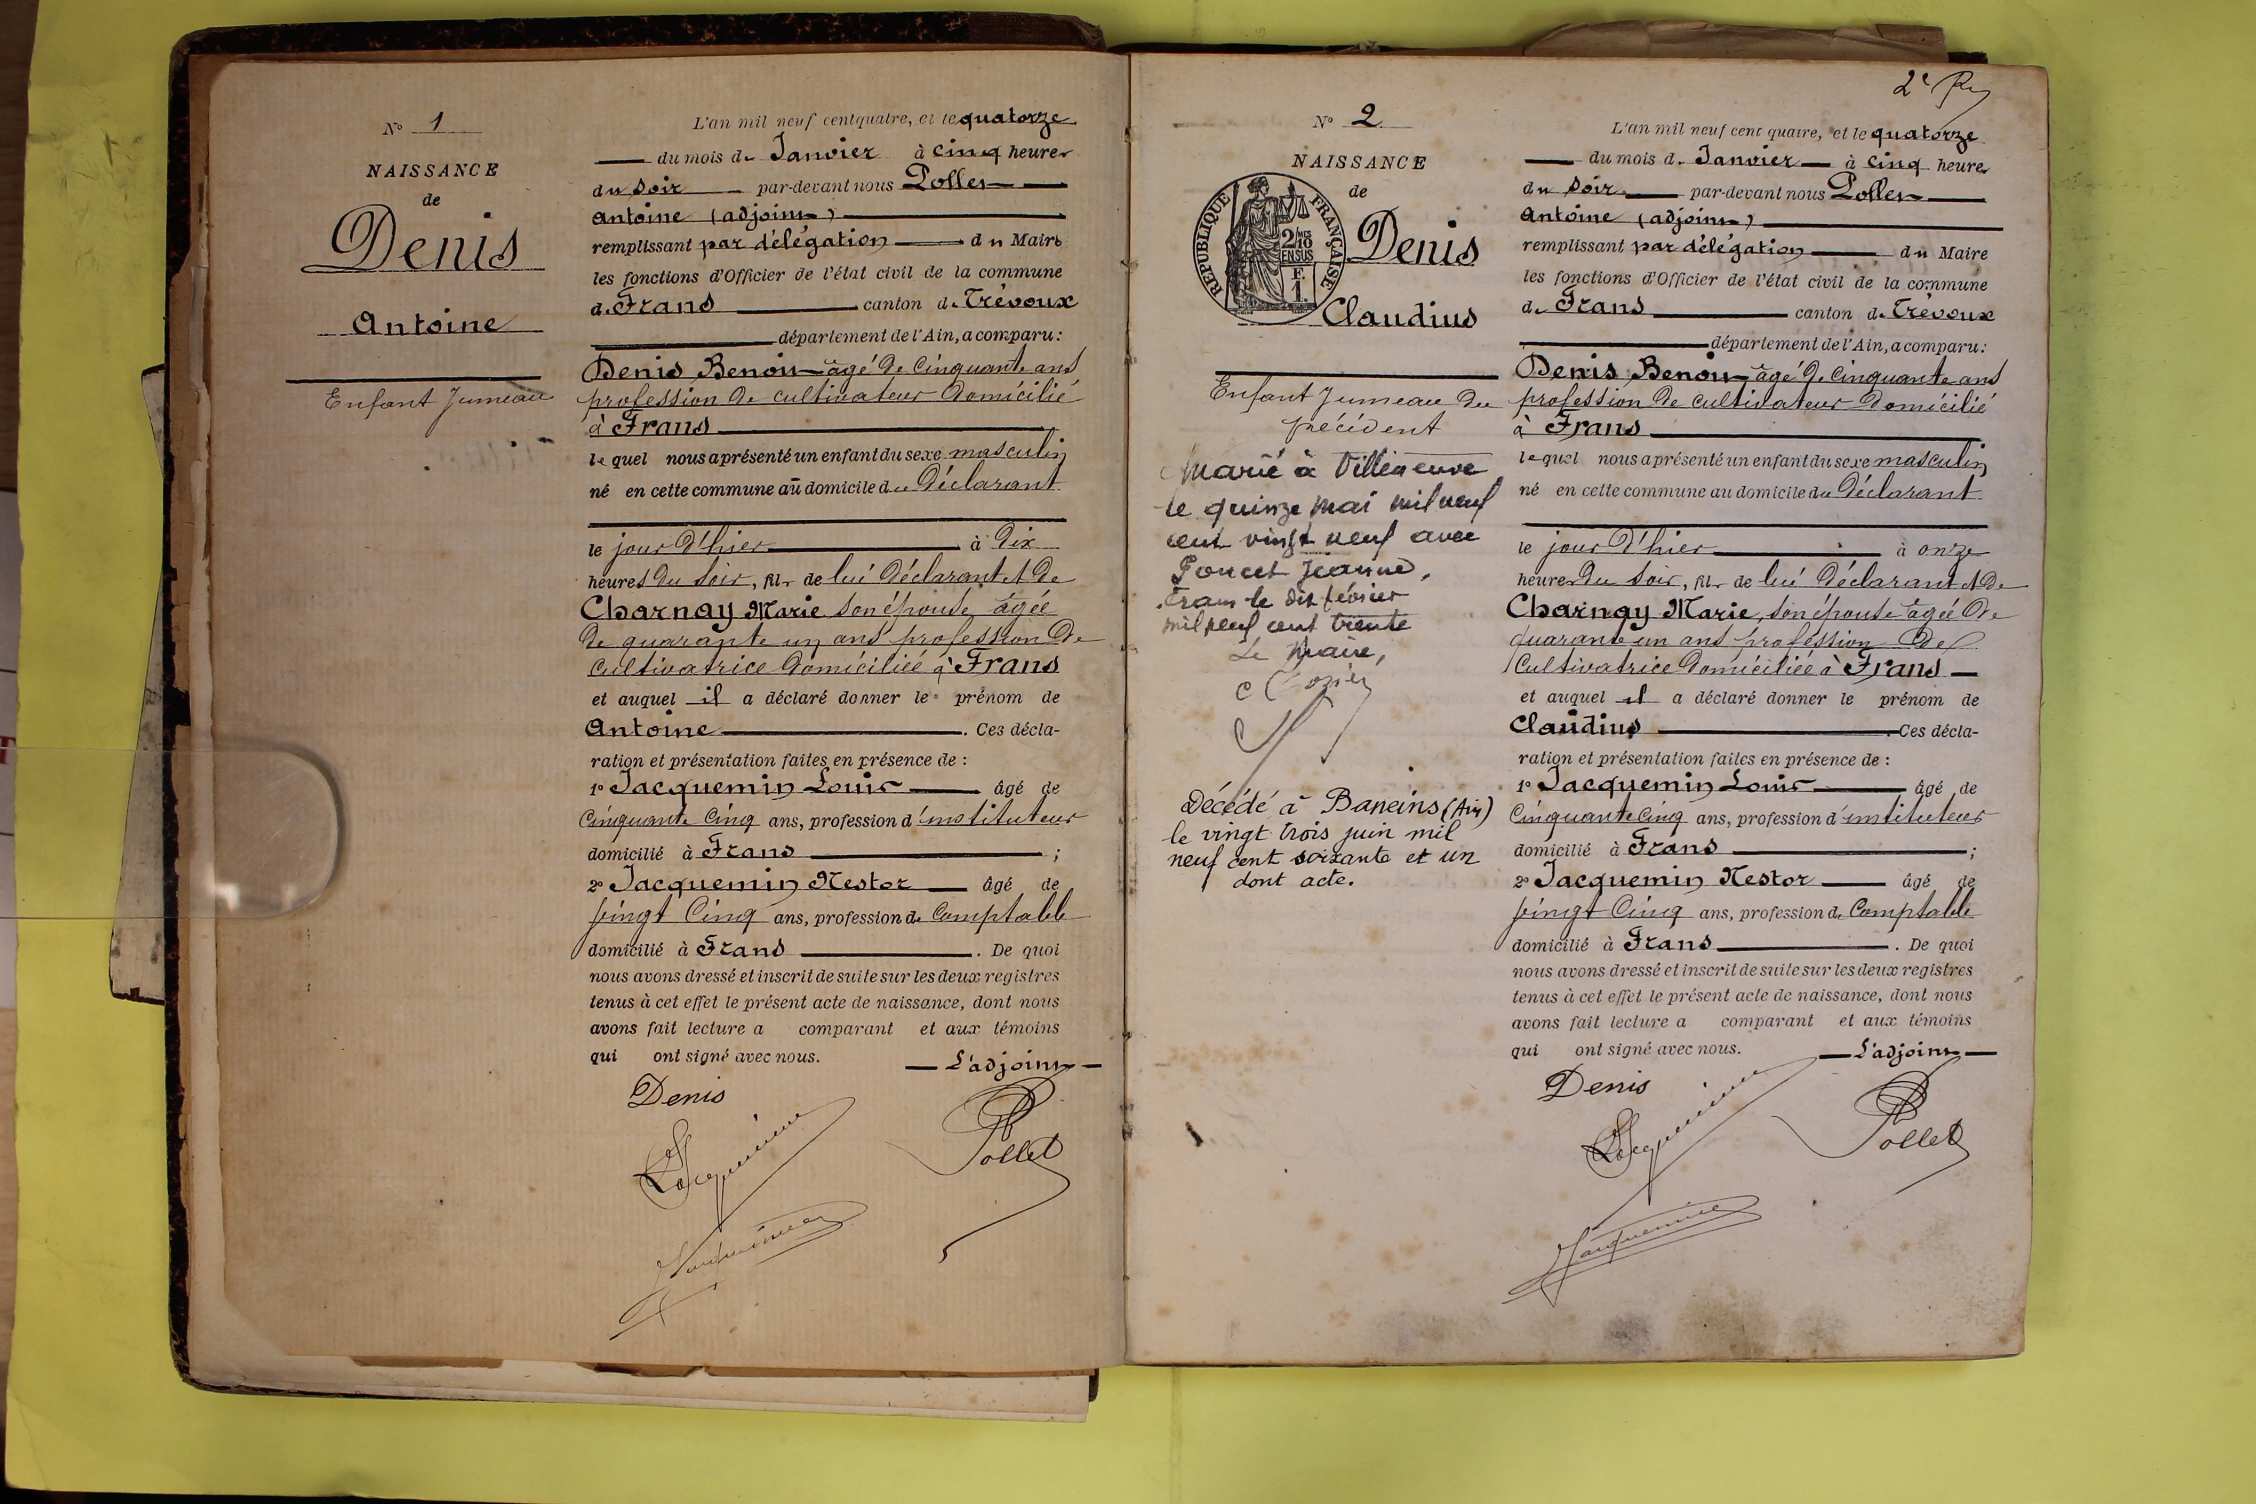 N° 1
NAISSANCE
de
Denis
Antoine
Enfant Jumeau
L'an mil neuf cent quatre, et le quatorze
du mois de Janvier à cinq heures
du soir par-devant nous Pollet
Antoine (adjoint)
remplissant par délégation du Maire
les fonctions d'Officier de l'état civil de la commune
de Frans canton de Trévoux
département de l'Ain, a comparu :
Denis Benoit âgé de cinquante ans
profession de cultivateur domicilié
à Frans
lequel nous a présenté un enfant du sexe masculin
né en cette commune au domicile du Déclarant
le jour d'hier à dix
heures du soir, fils de lui Déclarant et de
Charnay Marie son épouse âgée
de quarante un ans profession de
cultivatrice domiciliée à Frans
et auquel il a déclaré donner le prénom de
Antoine . Ces décla-
ration et présentation faites en présence de :
1° Jacquemin Louis âgé de
Cinquante Cinq ans, profession d'instituteur
domicilié à Frans ;
2° Jacquemin Nestor âgé de
vingt Cinq ans, profession de Comptable
domicilié à Frans . De quoi
nous avons dressé et inscrit de suite sur les deux registres
tenus à cet effet le présent acte de naissance, dont nous
avons fait lecture a comparant et aux témoins
qui ont signé avec nous. L'adjoint
Denis
LJacquemin
Pollet
Jacquemin
N° 2
NAISSANCE
de
RÉPUBLIQUE FRANÇAISE
2/10MES
EN SUS
F.
1.
Denis
Claudius
Enfant Jumeau du
précédent
Marié à Villeneuve
le quinze mai mil neuf
cent vingt neuf avec
Poncet Jeanne,
Frans le dix février
mil neuf cent trente
Le Maire,
Décédé à Baneins (Ain)
le vingt trois juin mil
neuf cent soixante et un
dont acte.
2e
L'an mil neuf cent quatre, et le quatorze
du mois de Janvier à cinq heures
du soir par-devant nous Pollet
Antoine (adjoint)
remplissant par délégation du Maire
les fonctions d'Officier de l'état civil de la commune
de Frans canton de Trévoux
département de l'Ain, a comparu :
Denis Benoit âgé de cinquante ans
profession de cultivateur domicilié
à Frans
lequel nous a présenté un enfant du sexe masculin
né en cette commune au domicile du Déclarant
le jour d'hier à onze
heures du soir, fils de lui Déclarant et de
Charnay Marie, son épouse âgée de
quarante un ans profession de
cultivatrice domiciliée à Frans
et auquel il a déclaré donner le prénom de
Claudius . Ces décla-
ration et présentation faites en présence de :
1° Jacquemin Louis âgé de
Cinquante Cinq ans, profession d'instituteur
domicilié à Frans ;
2° Jacquemin Nestor âgé de
vingt Cinq ans, profession de Comptable
domicilié à Frans . De quoi
nous avons dressé et inscrit de suite sur les deux registres
tenus à cet effet le présent acte de naissance, dont nous
avons fait lecture a comparant et aux témoins
qui ont signé avec nous. L'adjoint
Denis
LJacquemin
Pollet
Jacquemin